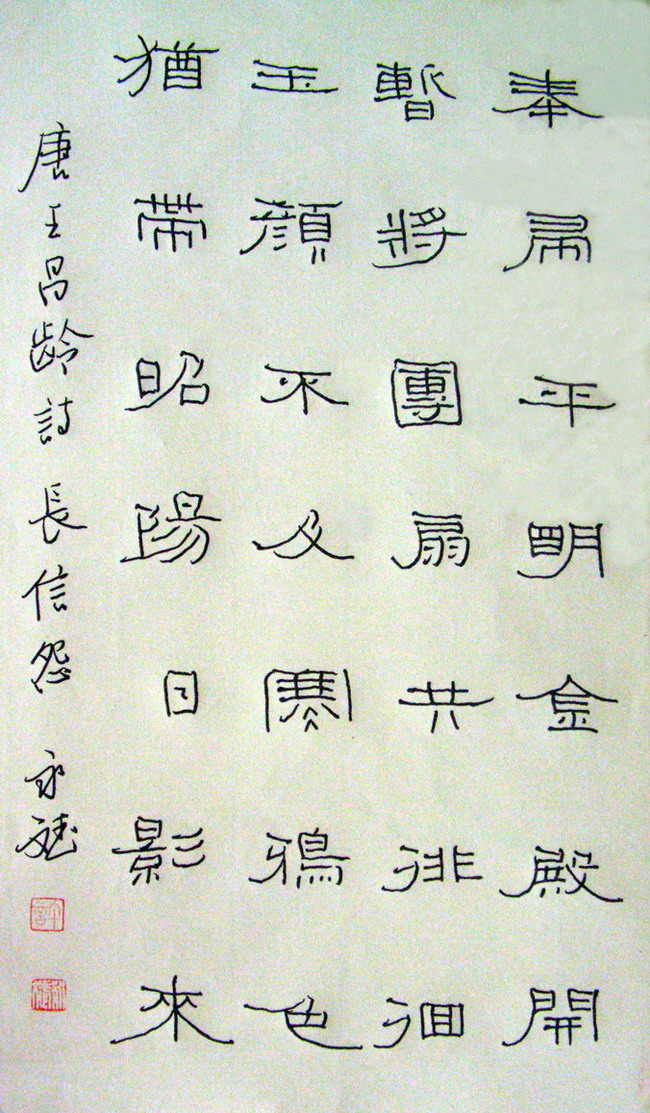 奉帚平明金殿開
暫將團扇共徘徊
玉顏不及寒鴉色
猶帶昭陽日影來
唐王昌齡詩 長信怨 永斌